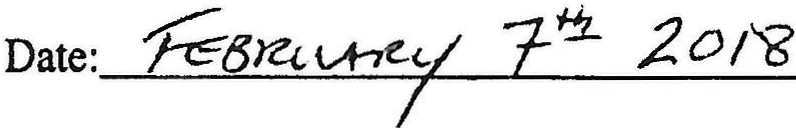 Date: FEBRUARY 7th 2018